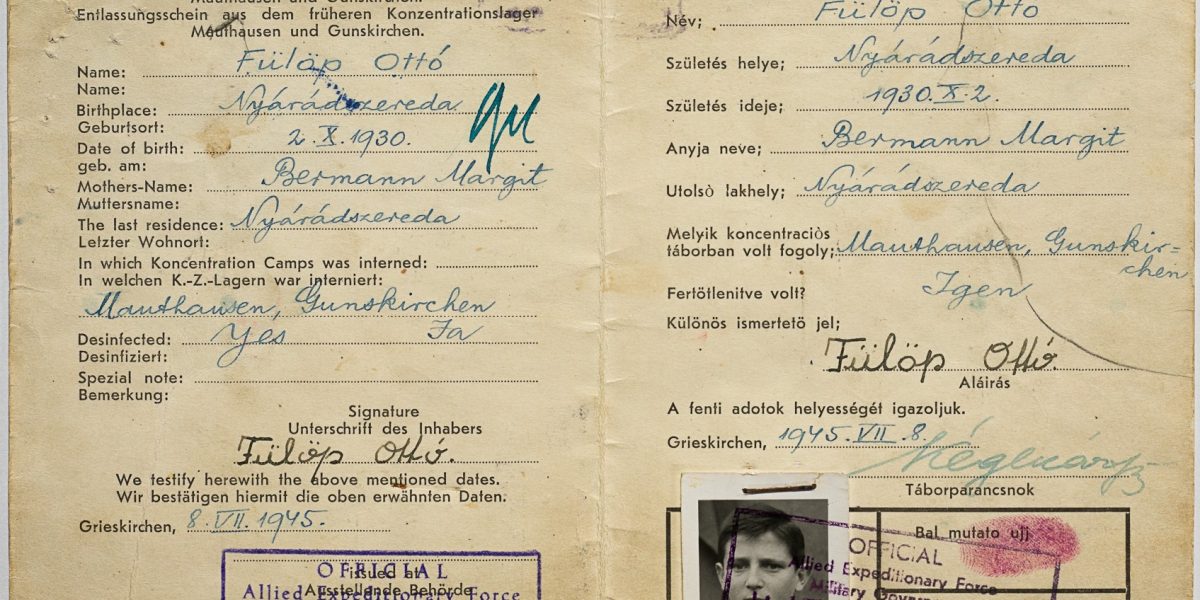 Entlassungsschein aus dem früheren Konzentrationslager
Mauthausen und Gunskirchen.
Name: Fülöp Ottó
Name:
Birthplace: Nyárádszereda
Geburtsort:
Date of birth: 2.X.1930.
geb. am:
Mothers-Name: Bermann Margit
Muttersname:
The last residence: Nyárádszereda
Letzter Wohnort:
In which Koncentration Camps was interned:
In welchen K.-Z.-Lagern war interniert:
Mauthausen, Gunskirchen
Desinfected: Yes Ja
Desinfiziert:
Spezial note:
Bemerkung:
Signature
Unterschrift des Inhabers
Fülöp Ottó.
We testify herewith the above mentioned dates.
Wir bestätigen hiermit die oben erwähnten Daten.
Grieskirchen, 8.VII.1945.
OFFICIAL
issued at
Ausstellende Behörde
Allied Expeditionary Force
Név; Fülöp Ottó
Születés helye; Nyárádszereda
Születés ideje; 1930.X.2.
Anyja neve; Bermann Margit
Utolsò lakhely; Nyárádszereda
Melyik koncentraciòs
táborban volt fogoly; Mauthausen, Gunskir-
chen
Fertötlenitve volt? Igen
Különös ismertetö jel;
Fülöp Ottó.
Aláirás
A fenti adotok helyességét igazoljuk.
Grieskirchen, 1945.VII.8.
Táborparancsnok
Bal mutato ujj
OFFICIAL
Allied Expeditionary Force
Military